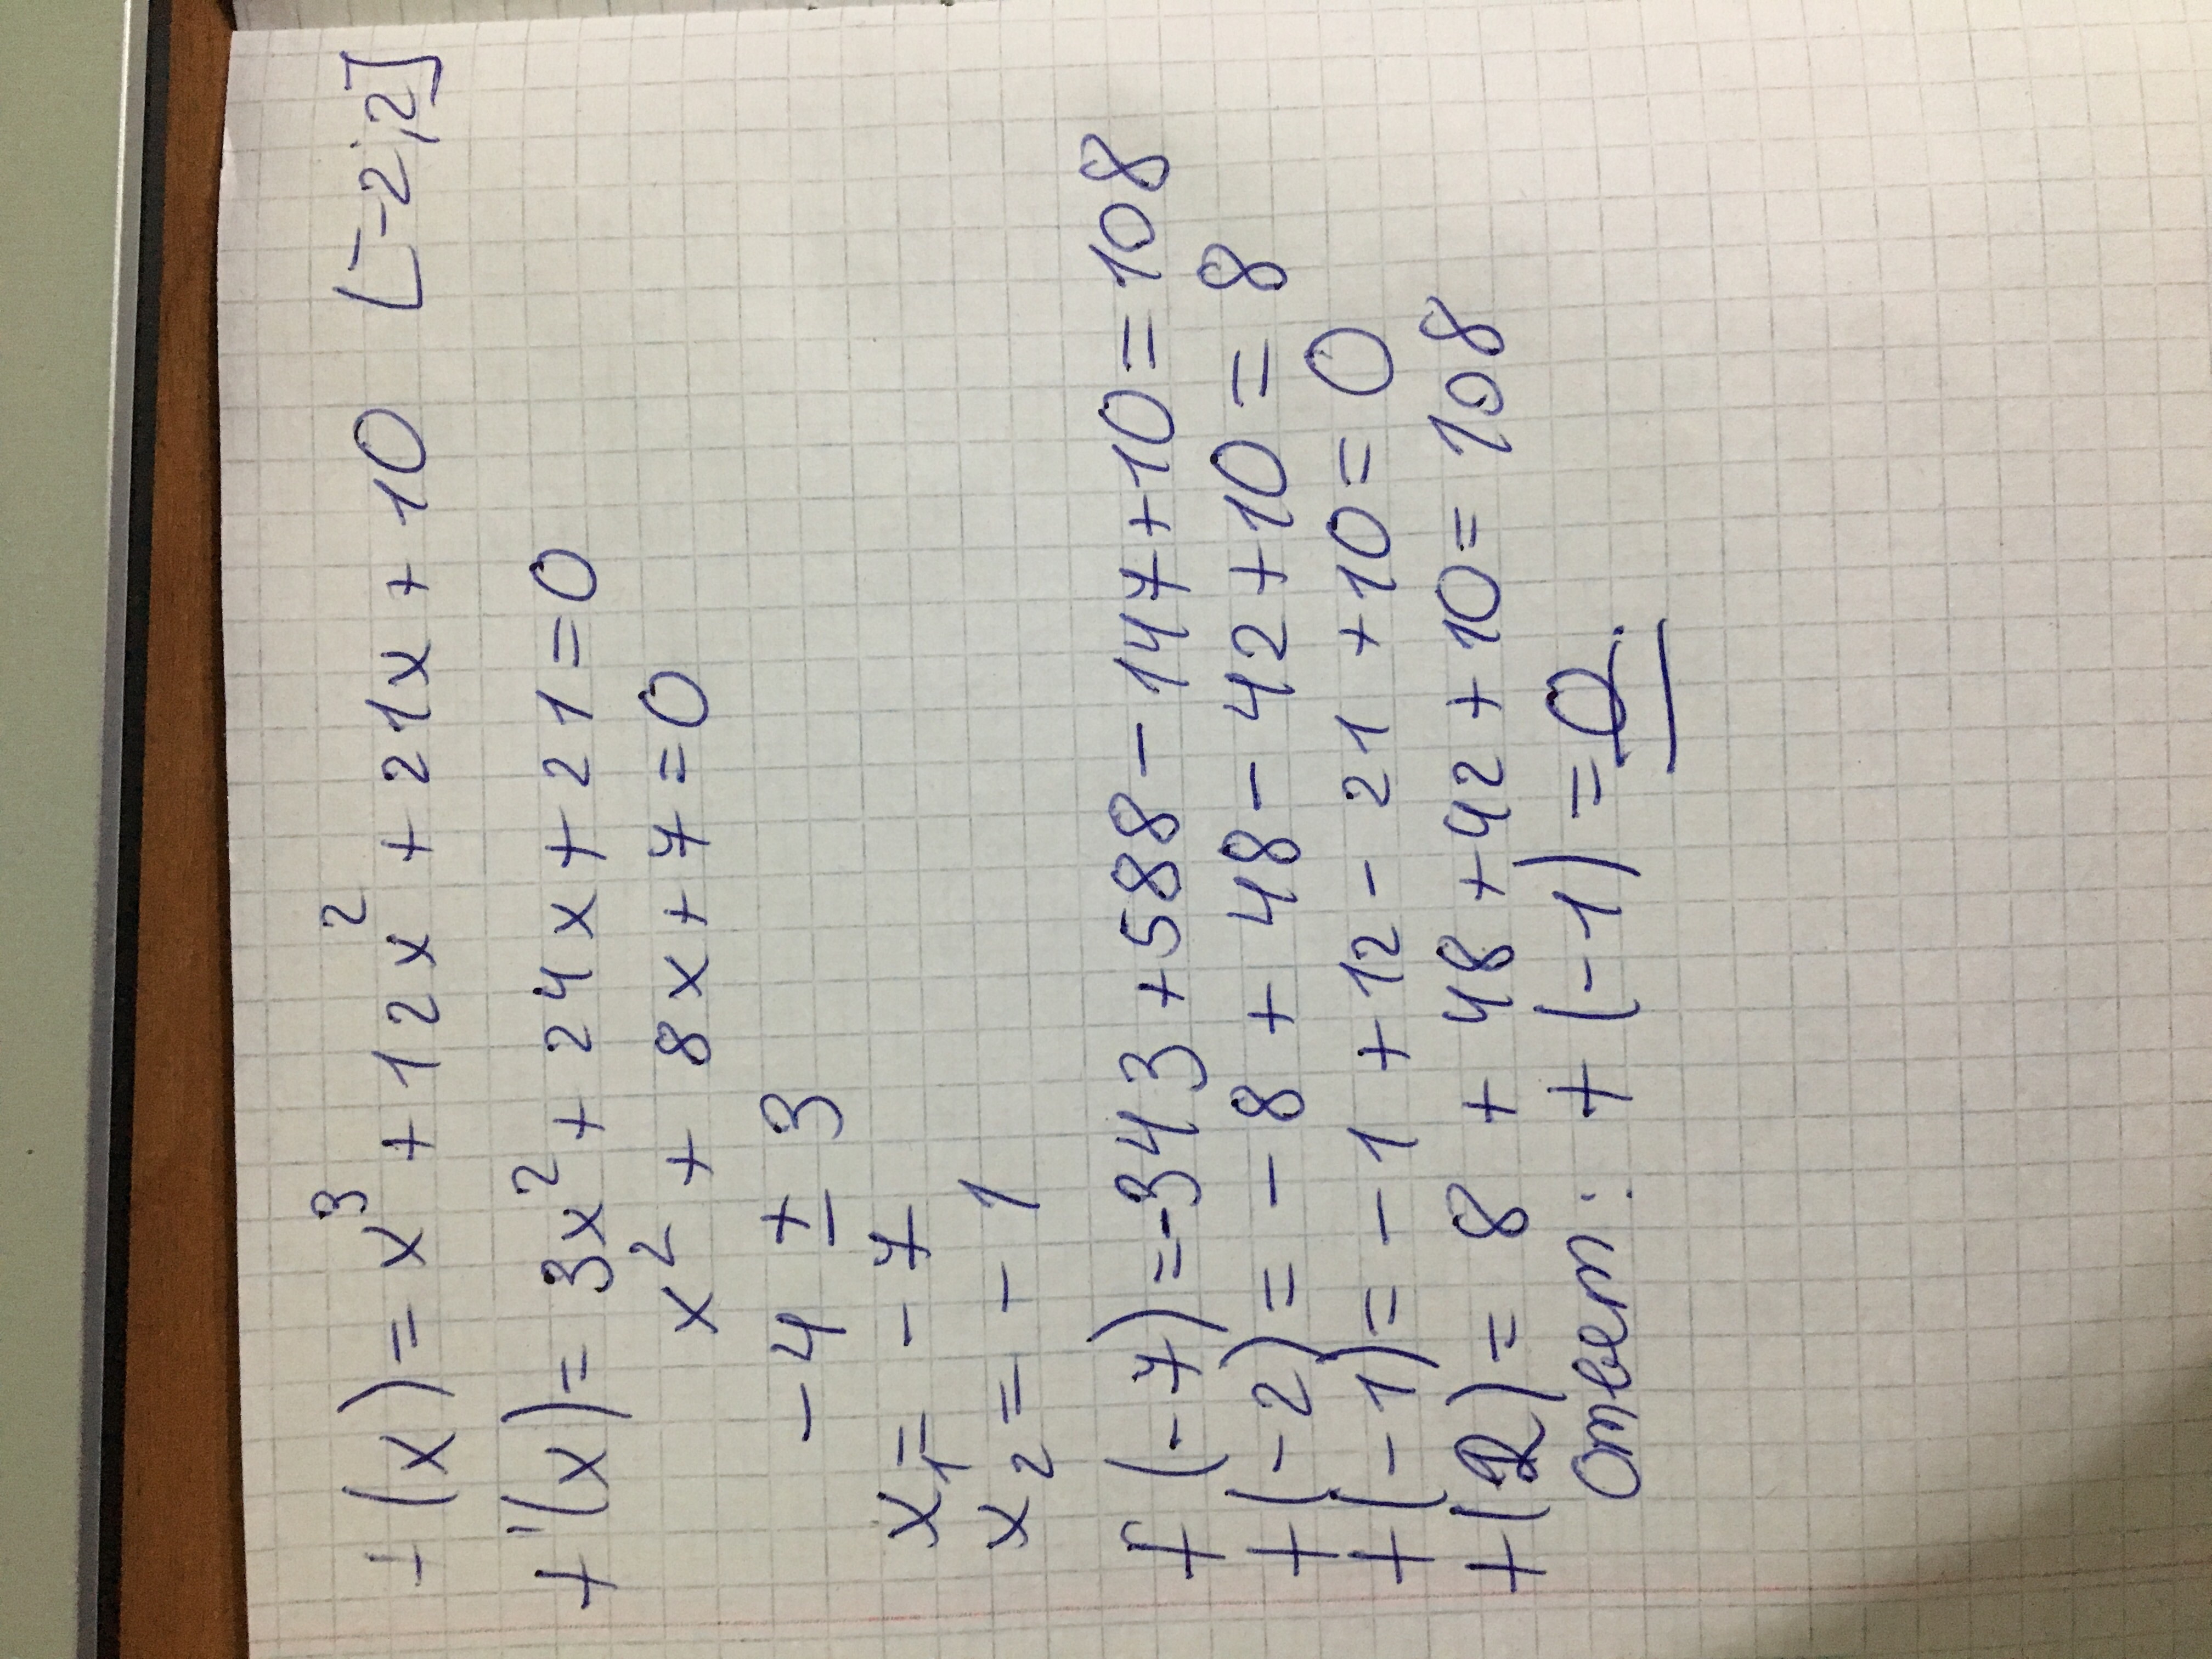 f(x) = x³ + 12x² + 21x + 10 [-2;2]
f'(x) = 3x² + 24x + 21 = 0
x² + 8x + 7 = 0
-4 ± 3
x₁ = -7
x₂ = -1
f(-7) = -343 + 588 - 147 + 10 = 108
f(-2) = -8 + 48 - 42 + 10 = 8
f(-1) = -1 + 12 - 21 + 10 = 0
f(2) = 8 + 48 + 42 + 10 = 108
Ответ: f(-1) = 0